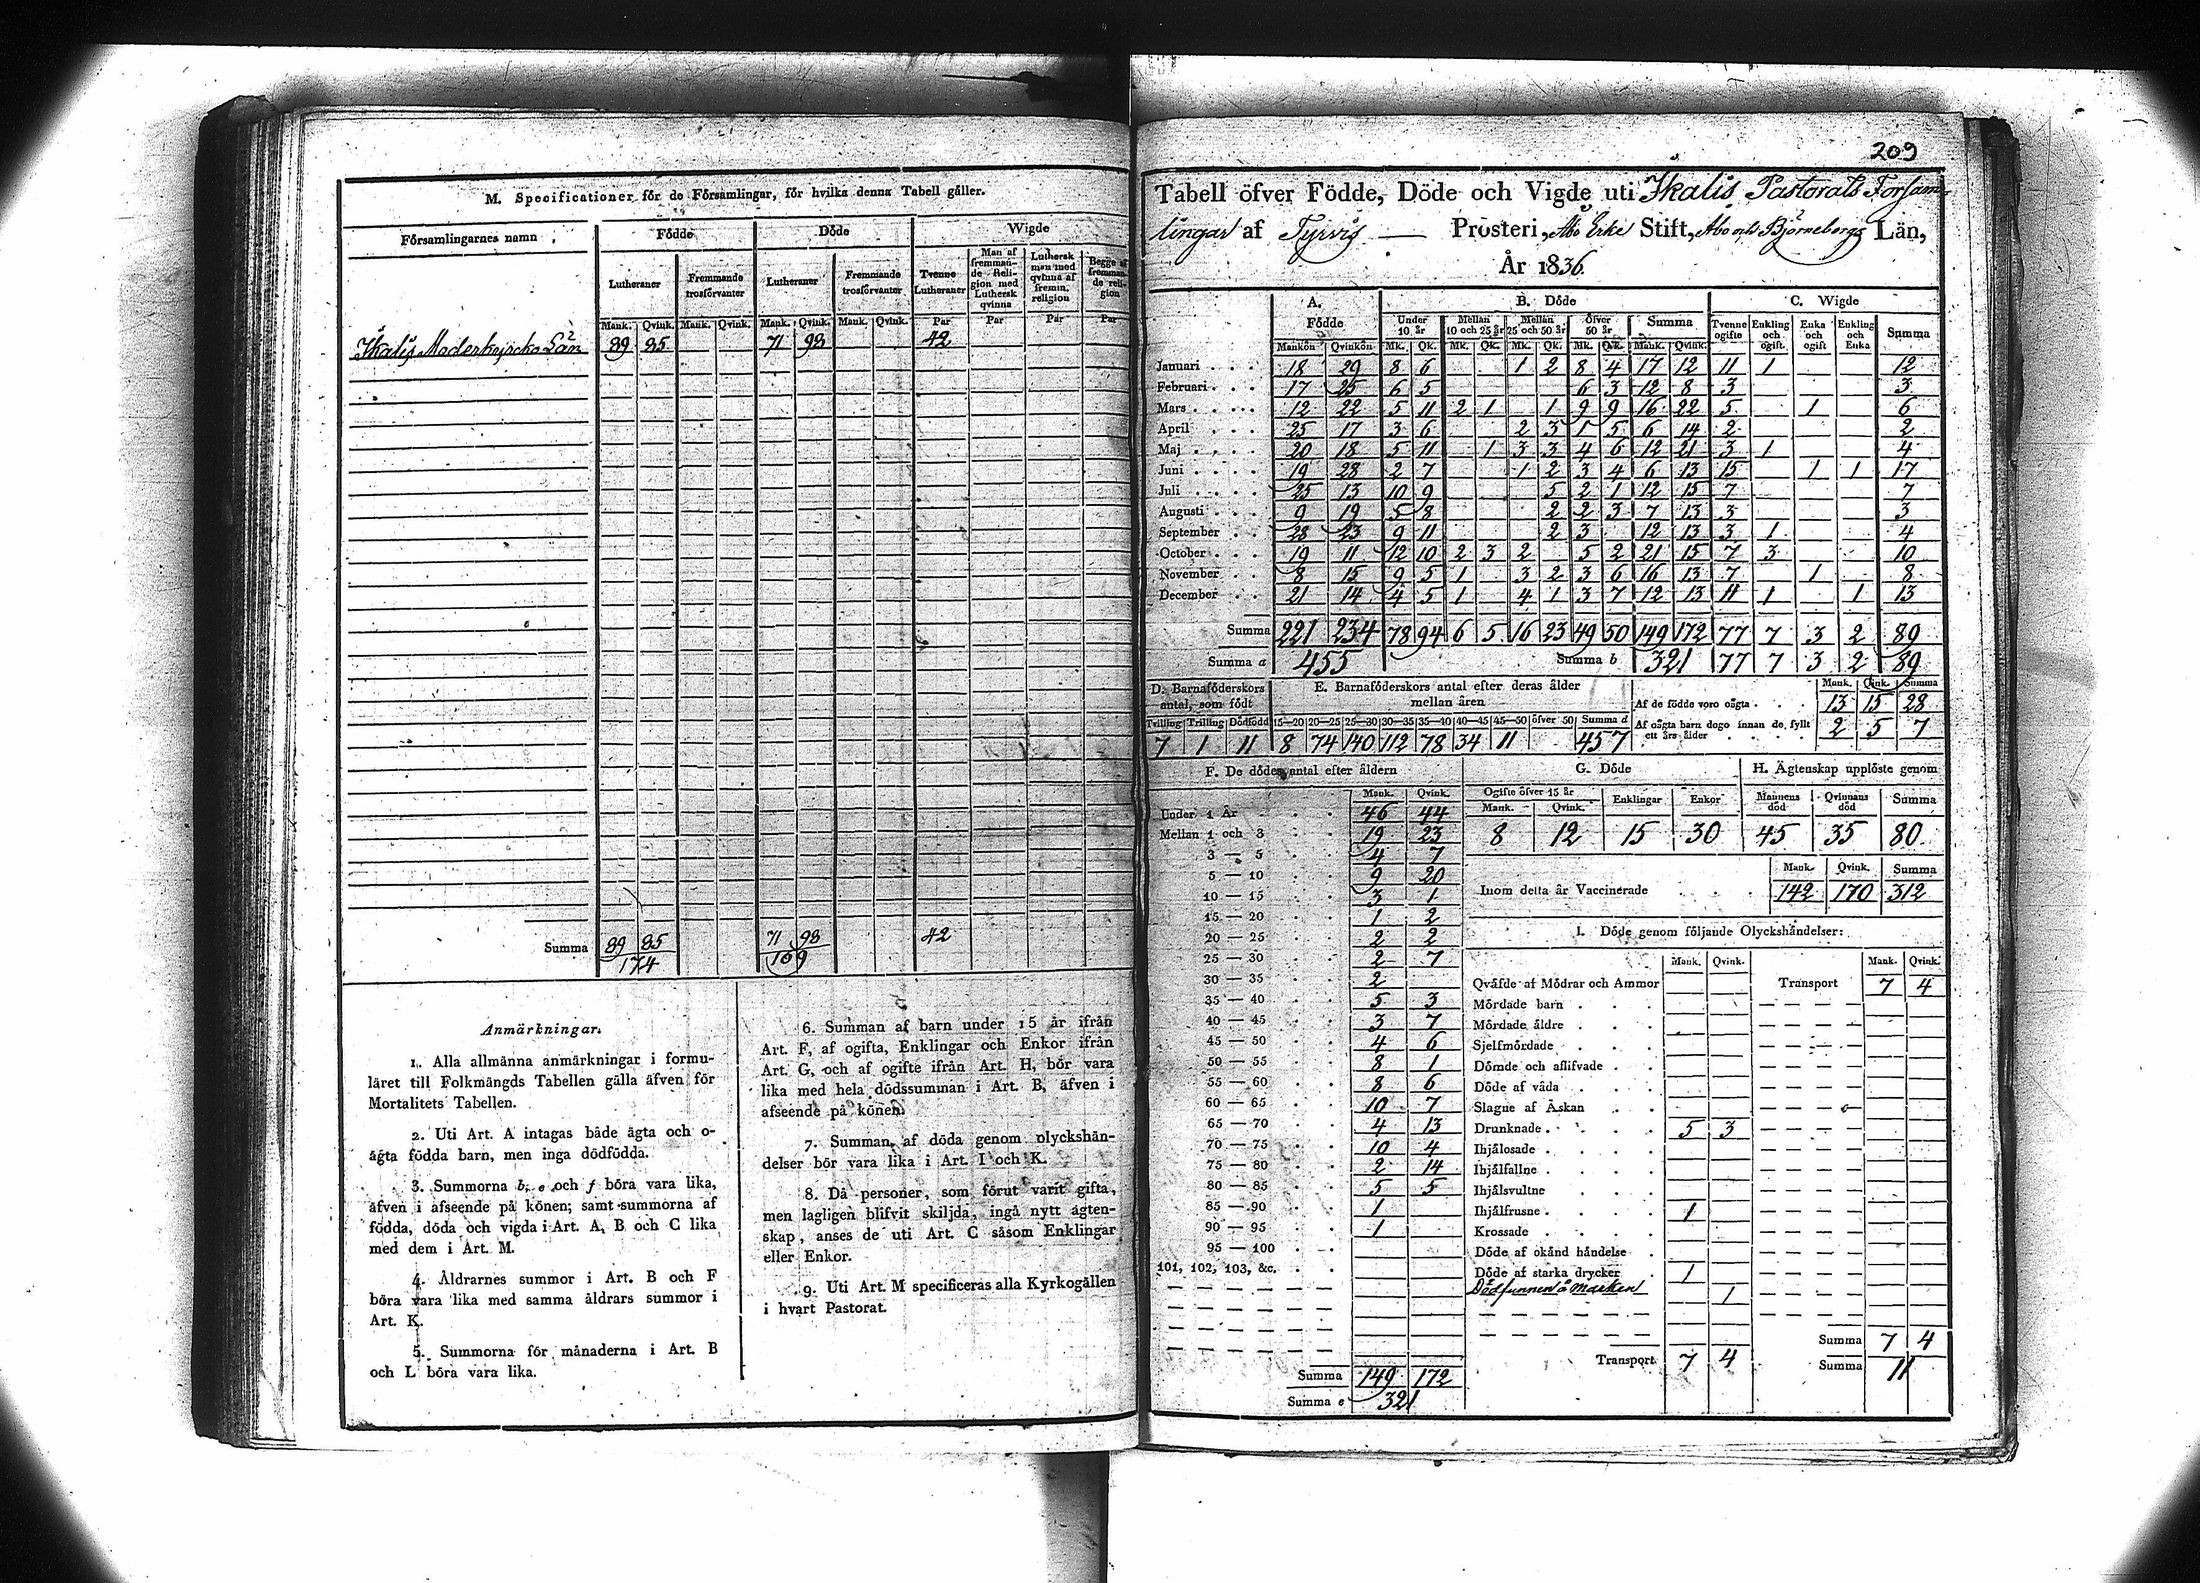 M. Specificationer för de Församlingar, för hvilka denna Tabell gäller.
Församlingarnes namn
Födde
Döde
Wigde
Lutheraner
Fremmande trosförvanter
Lutheraner
Fremmande trosförvanter
Tvenne Lutheraner
Man af fremmande Religion med Luthersk qvinna
Luthersk man med qvinna af fremm. religion
Begge af fremmande religion
Mank. Qvink. Mank. Qvink. Mank. Qvink. Mank. Qvink. Par Par Par Par
Ikalis Moderkyrcko Län 89 85 71 98 42
Summa 89 85 71 98 42
174 169
Anmärkningar.
1. Alla allmänna anmärkningar i formu-
läret till Folkmängds Tabellen gälla äfven för
Mortalitets Tabellen.
2. Uti Art. A intagas både ägta och o-
ägta födda barn, men inga dödfödda.
3. Summorna b, e och f böra vara lika,
äfven i afseende på könen; samt summorna af
födda, döda och vigda i Art. A, B och C lika
med dem i Art. M.
4. Åldrarnes summor i Art. B och F
böra vara lika med samma åldrars summor i
Art. K.
5. Summorna för månaderna i Art. B
och L böra vara lika.
6. Summan af barn under 15 år ifrån
Art. F, af ogifta, Enklingar och Enkor ifrån
Art. G, och af ogifte ifrån Art. H, bör vara
lika med hela dödssumman i Art. B, äfven i
afseende på könen.
7. Summan af döda genom olyckshän-
delser bör vara lika i Art. I och K.
8. Då personer, som förut varit gifta,
men lagligen blifvit skiljda, ingå nytt ägten-
skap, anses de uti Art. C såsom Enklingar
eller Enkor.
9. Uti Art. M specificeras alla Kyrkogällen
i hvart Pastorat.
209
Tabell öfver Födde, Döde och Vigde uti Ikalis Pastorats Försam-
lingar af Tyrvis Prosteri, Åbo Erke Stift, Åbo och Björneborgs Län,
År 1836.
A. Födde
B. Döde
C. Wigde
Under 10 år
Mellan 10 och 25 år
Mellan 25 och 50 år
Öfver 50 år
Summa
Tvenne ogifte
Enkling och ogift.
Enka och ogift
Enkling och Enka
Summa
Mankön Qvinkön Mk. Qk. Mk. Qk. Mk. Qk. Mk. Qk. Mank. Qvink.
Januari 18 29 8 6 1 2 8 4 17 12 11 1 12
Februari 17 25 6 5 6 3 12 8 3 3
Mars 12 22 5 11 2 1 1 9 9 16 22 5 1 6
April 25 17 3 6 2 3 1 5 6 14 2 2
Maj 20 18 5 11 1 3 3 4 6 12 21 3 1 4
Juni 19 28 2 7 1 2 3 4 6 13 15 1 1 17
Juli 25 13 10 9 5 2 1 12 15 7 7
Augusti 9 19 5 8 2 2 3 7 13 3 3
September 28 23 9 11 2 3 12 13 3 1 4
October 19 11 12 10 2 3 2 5 2 21 15 7 3 10
November 8 15 9 5 1 3 2 3 6 16 13 7 1 8
December 21 14 4 5 1 4 1 3 7 12 13 11 1 1 13
Summa 221 234 78 94 6 5 16 23 49 50 149 172 77 7 3 2 89
Summa a 455 Summa b 321 77 7 3 2 89
D. Barnaföderskors antal, som födt
Tvilling Trilling Dödfödd
7 1 11
E. Barnaföderskors antal efter deras ålder mellan åren
15—20 20—25 25—30 30—35 35—40 40—45 45—50 öfver 50 Summa d
8 74 140 112 78 34 11 457
Mank. Qvink. Summa
Af de födde voro oägta 13 15 28
Af oägta barn dogo innan de fyllt
ett års ålder 2 5 7
F. De dödes antal efter åldern
Mank. Qvink.
Under 1 År 46 44
Mellan 1 och 3 19 23
3 — 5 4 7
5 — 10 9 20
10 — 15 3 1
15 — 20 1 2
20 — 25 2 2
25 — 30 2 7
30 — 35 2
35 — 40 5 3
40 — 45 3 7
45 — 50 4 6
50 — 55 8 1
55 — 60 8 6
60 — 65 10 7
65 — 70 4 13
70 — 75 10 4
75 — 80 2 14
80 — 85 5 5
85 — 90 1
90 — 95 1
95 — 100
101, 102, 103, &c.
Summa 149 172
Summa e 321
G. Döde
Ogifte öfver 15 år
Mank. Qvink. Enklingar Enkor
8 12 15 30
H. Ägtenskap upplöste genom
Mannens död Qvinnans död Summa
45 35 80
Mank. Qvink. Summa
Inom detta år Vaccinerade 142 170 312
I. Döde genom följande Olyckshändelser:
Mank. Qvink. Mank. Qvink.
Qväfde af Mödrar och Ammor Transport 7 4
Mördade barn
Mördade äldre
Sjelfmördade
Dömde och aflifvade
Döde af våda
Slagne af Åskan
Drunknade 5 3
Ihjälosade
Ihjälfallne
Ihjälsvultne
Ihjälfrusne 1
Krossade
Döde af okänd händelse
Döde af starka drycker 1
Dödfunnen å Marken 1
Summa 7 4
Transport 7 4 Summa 11